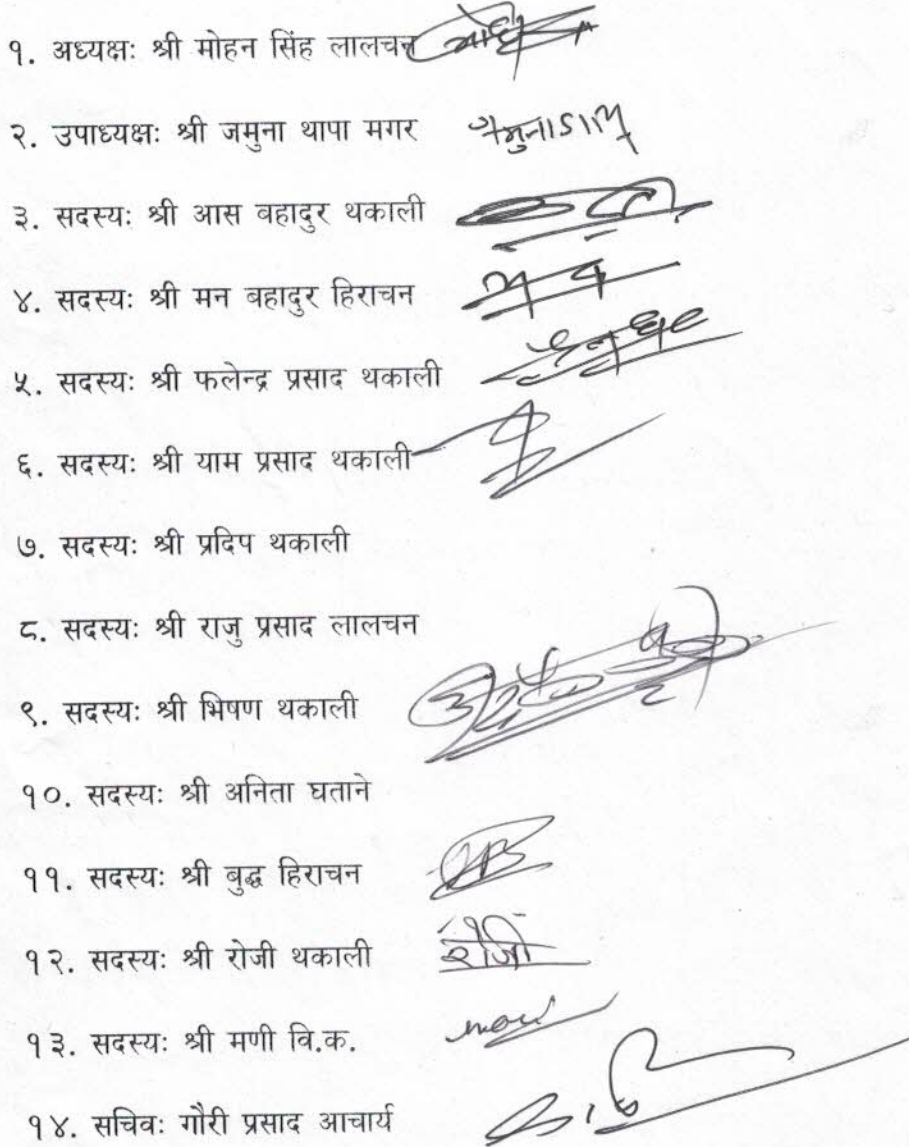 १. अध्यक्षः श्री मोहन सिंह लालचन
२. उपाध्यक्षः श्री जमुना थापा मगर
३. सदस्यः श्री आस बहादुर थकाली
४. सदस्यः श्री मन बहादुर हिराचन
५. सदस्यः श्री फलेन्द्र प्रसाद थकाली
६. सदस्यः श्री याम प्रसाद थकाली
७. सदस्यः श्री प्रदिप थकाली
८. सदस्यः श्री राजु प्रसाद लालचन
९. सदस्यः श्री भिषण थकाली
१०. सदस्यः श्री अनिता घताने
११. सदस्यः श्री बुद्ध हिराचन
१२. सदस्यः श्री रोजी थकाली रोजी
१३. सदस्यः श्री मणी वि.क.
१४. सचिवः गौरी प्रसाद आचार्य